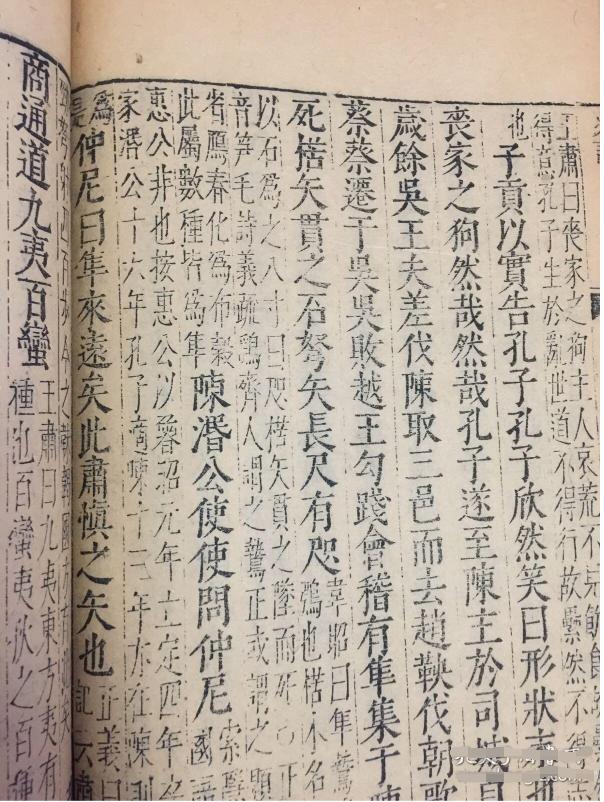 王肅曰喪家之狗主人哀荒不見飲食故纍
得意孔子生於亂世道不得行故纍然不得
也子貢以實告孔子孔子欣然笑曰形狀末
喪家之狗然哉然哉孔子遂至陳主於司城貞
歲餘吳王夫差伐陳取三邑而去趙鞅伐朝歌
蔡蔡遷于吳吳敗越王勾踐會稽有隼集于陳
死楛矢貫之石砮矢長尺有咫韋昭曰隼
鷙也楛木名
以石為之八寸曰咫楛矢貫之墜而死
音笄毛詩義疏鷂齊人謂之鷙正或謂之題
省鴈春化為布穀
此屬數種皆為隼陳湣公使使問仲尼索隱
國語
惠公非也按惠公以魯昭元年立定四年卒
家湣公十六年孔子適陳十三年亦在陳則
為
是仲尼曰隼來遠矣此肅慎之矢也正義曰
記云肅
商通道九夷百蠻王肅曰九夷東方夷有
種也百蠻夷狄之百種